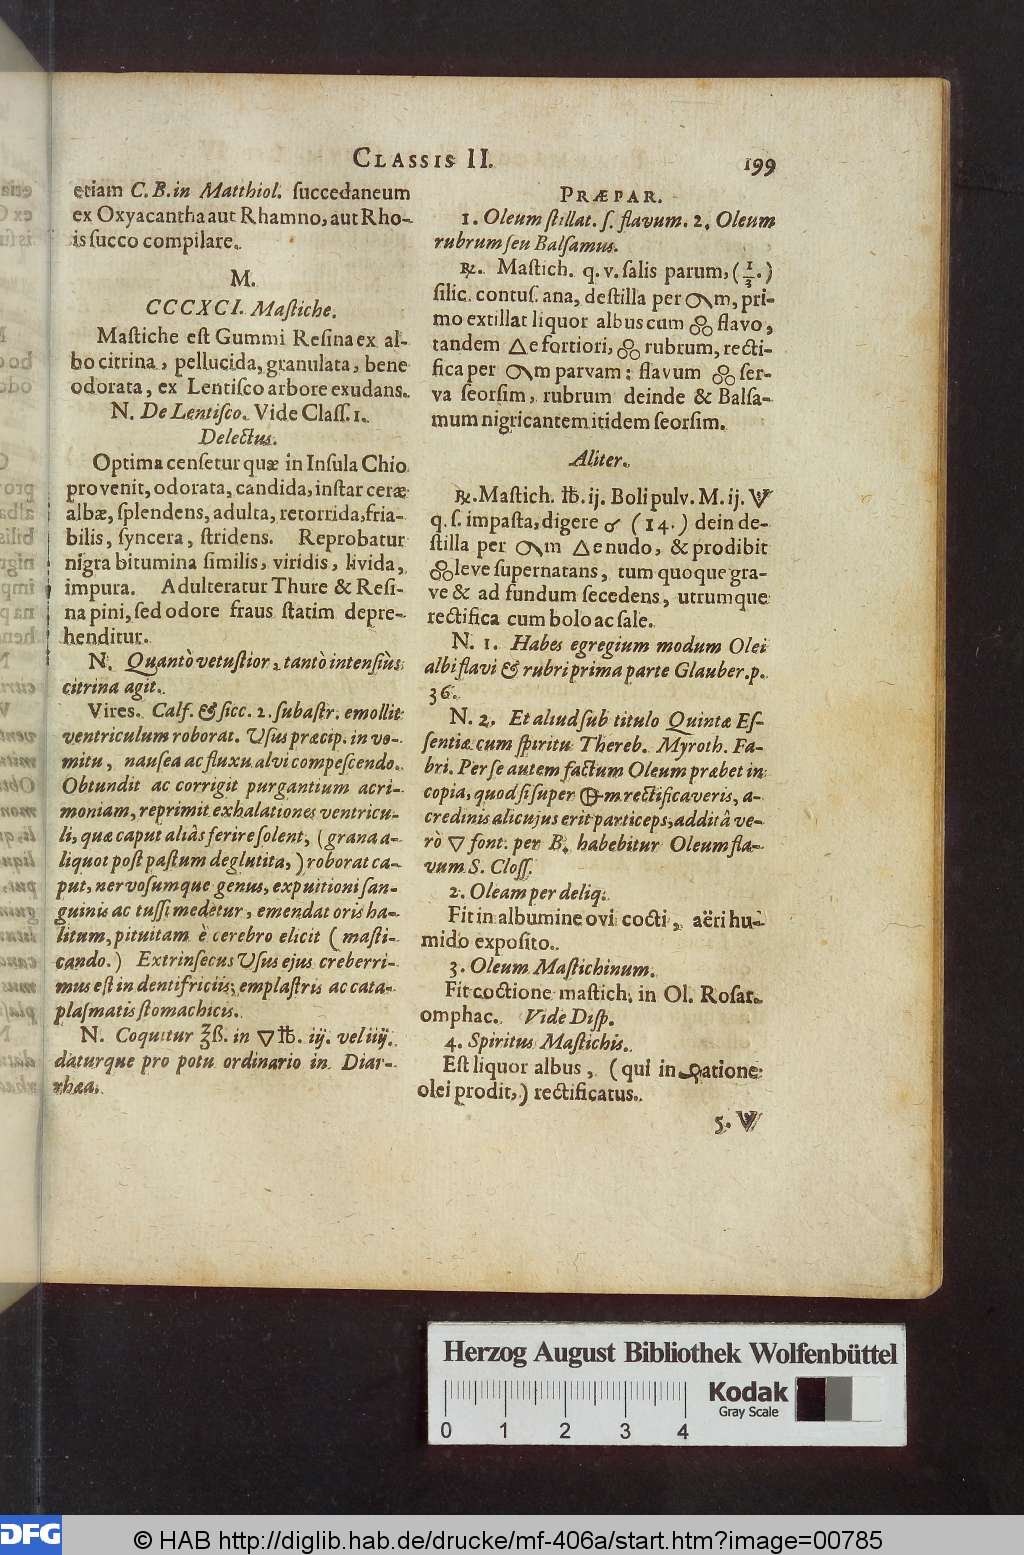 CLASSIS II. 199
etiam C. B. in Matthiol. ſuccedaneum
ex Oxyacantha aut Rhamno, aut Rho-
is ſucco compilare.
M.
CCCXCI. Maſtiche.
Maſtiche eſt Gummi Reſina ex al-
bo citrina, pellucida, granulata, bene
odorata, ex Lentiſco arbore exudans.
N. De Lentiſco. Vide Claſſ. 1.
Delectus.
Optima cenſetur quæ in Inſula Chio
provenit, odorata, candida, inſtar ceræ
albæ, ſplendens, adulta, retorrida, fria-
bilis, ſyncera, ſtridens. Reprobatur
nigra bitumina ſimilis, viridis, livida,
impura. Adulteratur Thure & Reſi-
na pini, ſed odore fraus ſtatim depre-
henditur.
N. Quantò vetuſtior, tantò intenſiùs
citrina agit.
Vires. Calf. & ſicc. 2. ſubaſtr. emollit
ventriculum roborat. Uſus præcip. in vo-
mitu, nauſea ac fluxu alvi compeſcendo.
Obtundit ac corrigit purgantium acri-
moniam, reprimit exhalationes ventricu-
li, quæ caput aliàs ferire ſolent, (grana a-
liquot poſt paſtum deglutita,) roborat ca-
put, nervoſumque genus, expuitioni ſan-
guinis ac tuſſi medetur, emendat oris ha-
litum, pituitam è cerebro elicit (maſti-
cando.) Extrinſecus Uſus ejus creberri-
mus eſt in dentifriciis, emplaſtris ac cata-
plaſmatis ſtomachicis.
N. Coquitur ʒß. in 🜄 ℔. iij. vel iiij.
daturque pro potu ordinario in Diar-
rhæa.
PRÆPAR.
1. Oleum ſtillat. ſ. flavum. 2. Oleum
rubrum ſeu Balſamus.
℞. Maſtich. q. v. ſalis parum, (1/3.)
ſilic. contuſ. ana, deſtilla per m, pri-
mo extillat liquor albus cum flavo,
tandem 🜂e fortiori, rubrum, recti-
fica per m parvam: flavum ſer-
va ſeorſim, rubrum deinde & Balſa-
mum nigricantem itidem ſeorſim.
Aliter.
℞. Maſtich. ℔. ij. Boli pulv. M. ij.
q. ſ. impaſta, digere (14.) dein de-
ſtilla per m 🜂e nudo, & prodibit
leve ſupernatans, tum quoque gra-
ve & ad fundum ſecedens, utrumque
rectifica cum bolo ac ſale.
N. 1. Habes egregium modum Olei
albi flavi & rubri prima parte Glauber. p.
36.
N. 2. Et aliud ſub titulo Quintæ Eſ-
ſentiæ cum ſpiritu Thereb. Myroth. Fa-
bri. Per ſe autem factum Oleum præbet in
copia, quod ſi ſuper m rectificaveris, a-
credinis alicujus erit particeps, additâ ve-
rò 🜄 font. per B. habebitur Oleum fla-
vum S. Cloſſ.
2. Oleam per deliq.
Fit in albumine ovi cocti, aëri hu-
mido expoſito.
3. Oleum Maſtichinum.
Fit coctione maſtich. in Ol. Roſat.
omphac. Vide Diſp.
4. Spiritus Maſtichis.
Eſt liquor albus, (qui in atione
olei prodit,) rectificatus.
5.
Herzog August Bibliothek Wolfenbüttel
0 1 2 3 4
Kodak
Gray Scale
DFG
© HAB http://diglib.hab.de/drucke/mf-406a/start.htm?image=00785